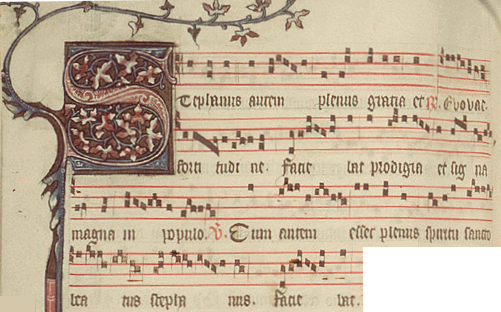 STephanus autem plenus gratia et R. Evovae.
forti tudi ne. Facie bat prodigia et sig na
magna in populo. V. Cum autem esset plenus spiritu sancto
bea tus stepha nus. Facie bat.